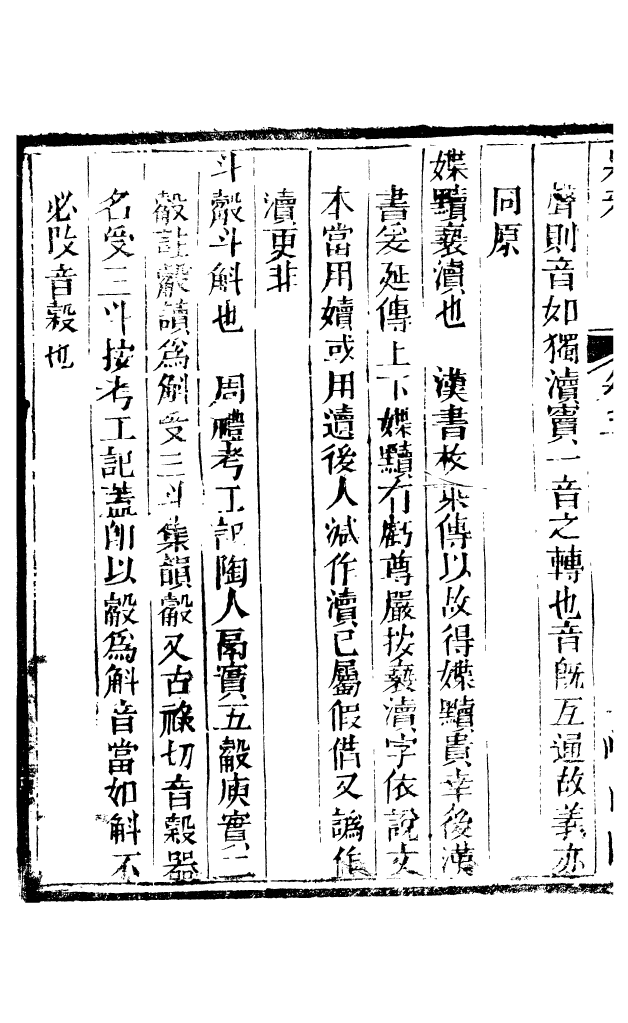 聲則音如獨瀆竇一音之轉也音旣互通故義亦
同原
媟黷褻瀆也　漢書枚乘傳以故得媟黷貴幸後漢
書爰延傳上下媟黷有虧尊嚴按褻瀆字依說文
本當用嬻或用遺後人減作瀆已屬假借又譌作
瀆更非
斗㲉斗斛也　周禮考工記陶人鬲實五㲉庾實二
㲉註㲉讀爲斛受三斗集韻㲉又古祿切音穀器
名受三斗按考工記蓋卽以㲉爲斛音當如斛不
必改音穀也